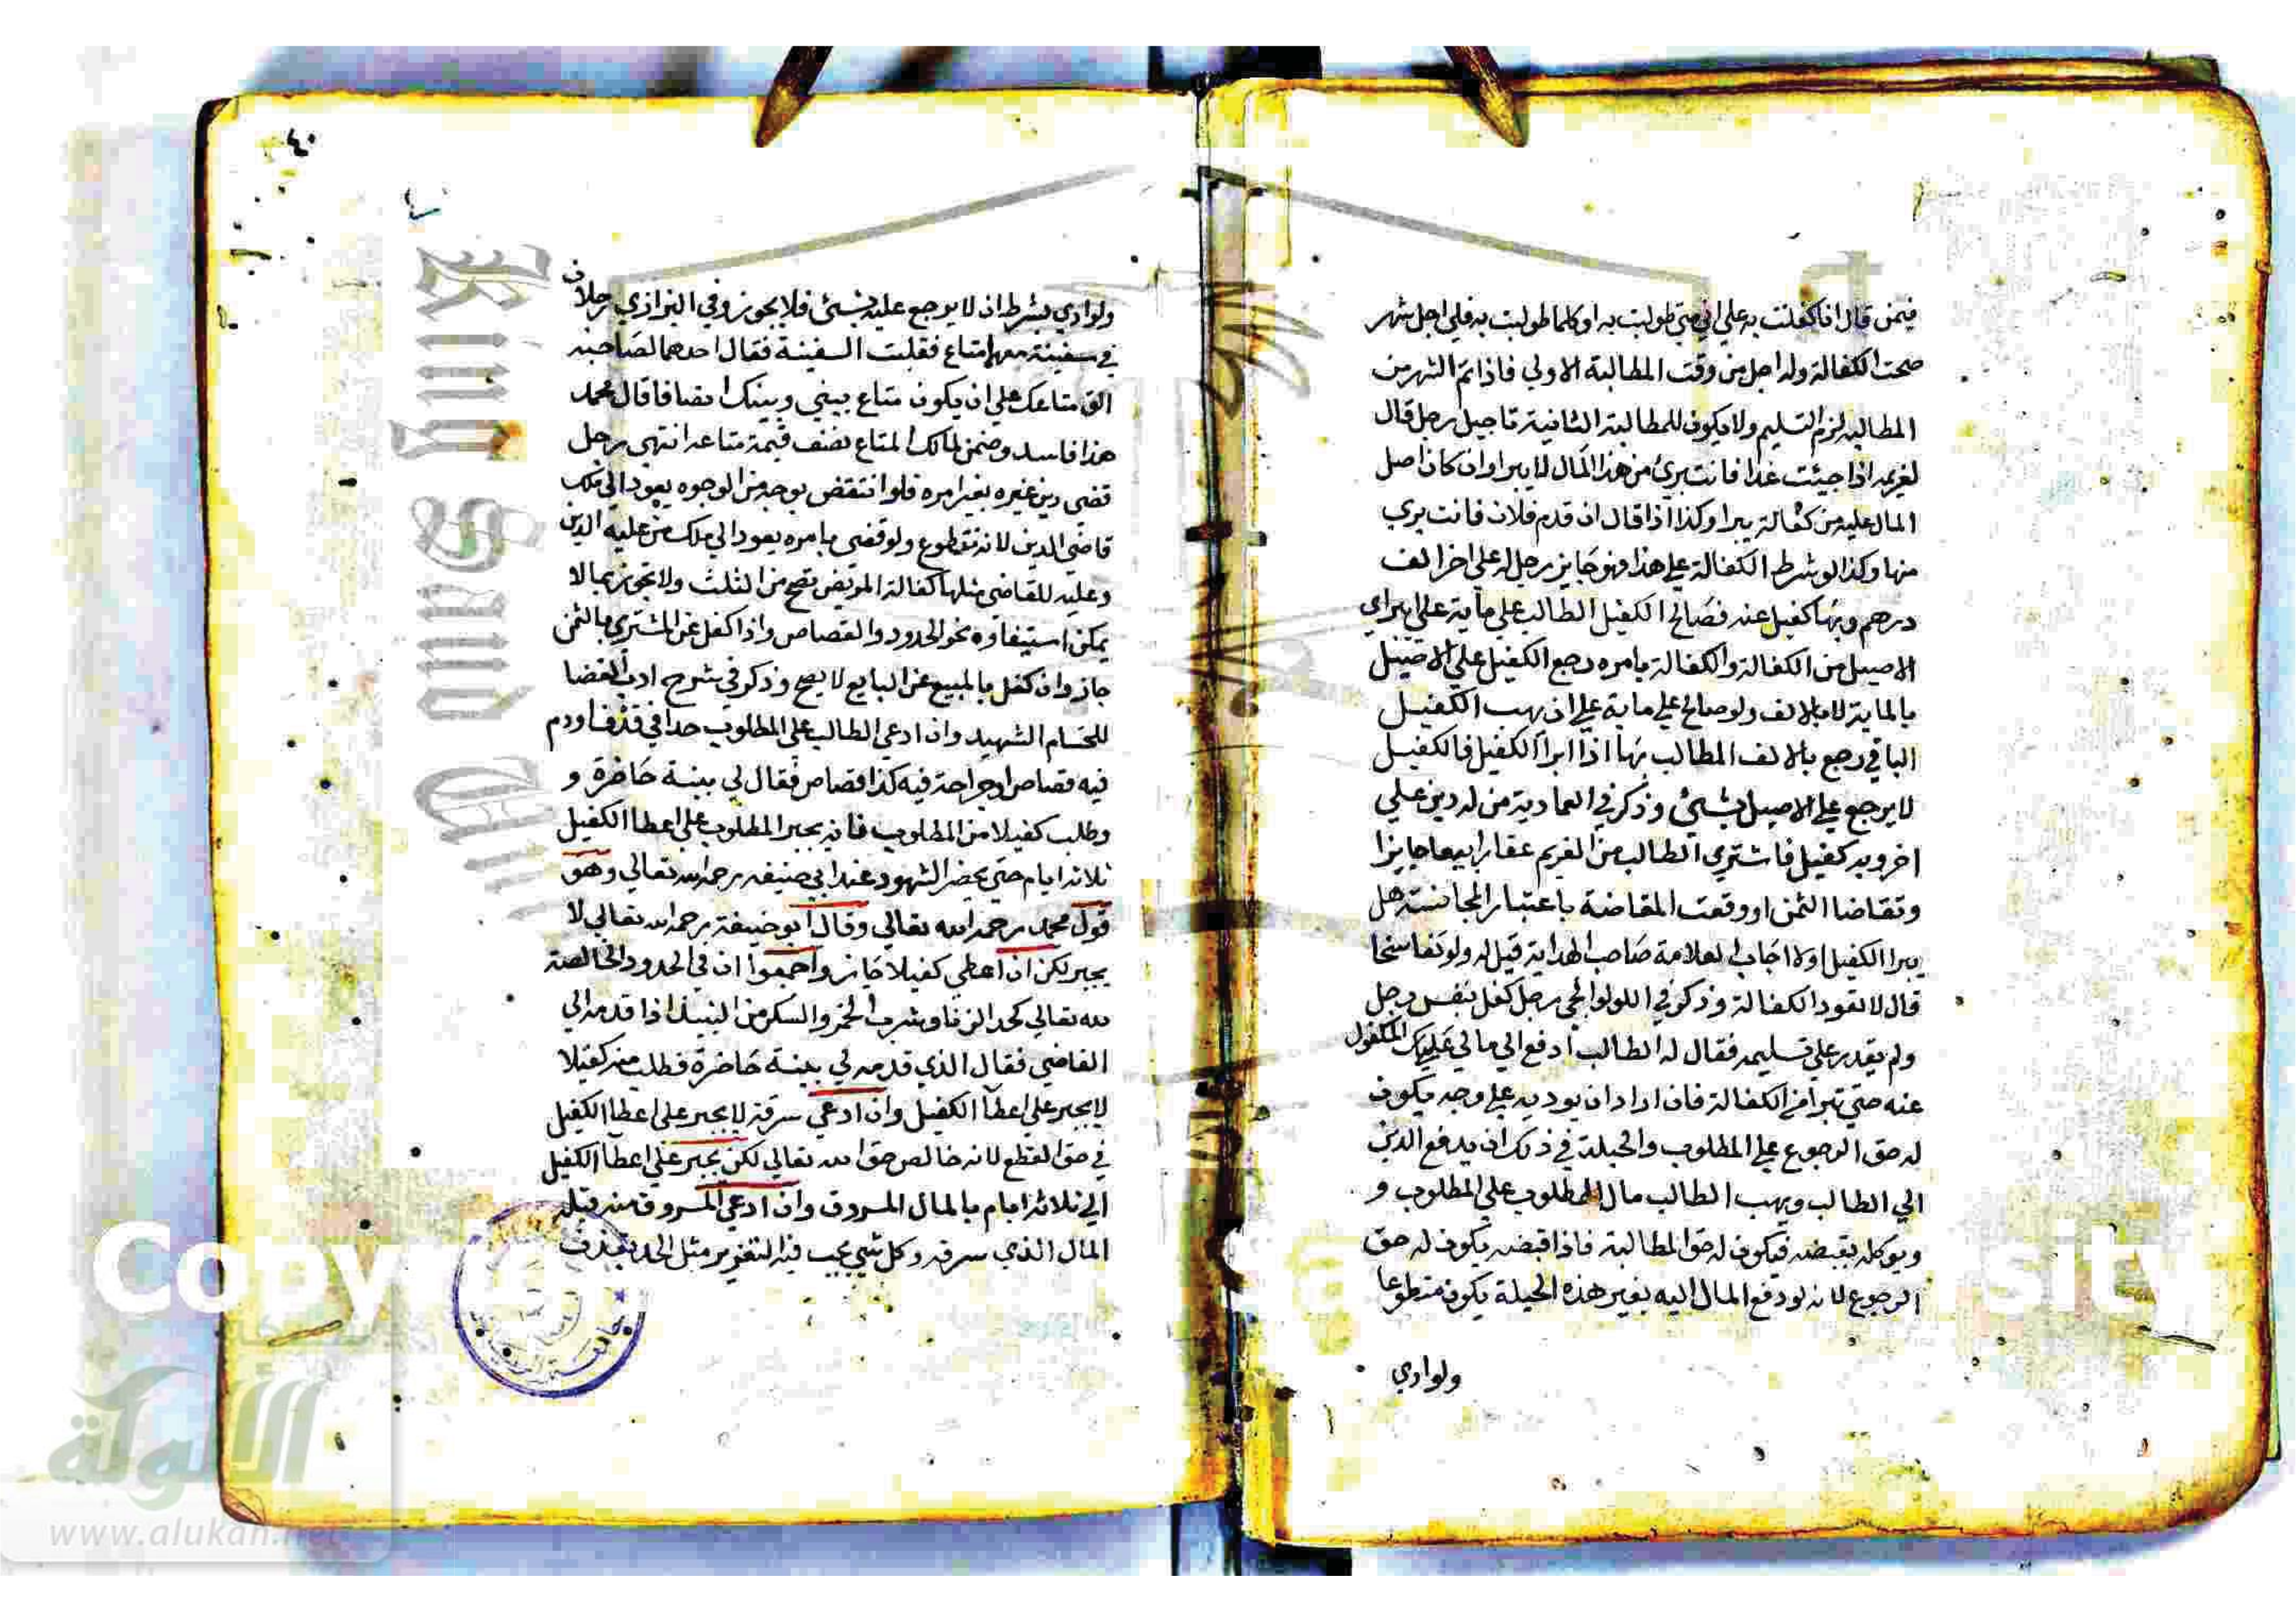 فيمن قال انا كفلت به علي اني متي طولبت به او كلما طولبت به فلي اجل شهر
صحت الكفالة وله اجل من وقت المطالبة الاولي فاذا تم الشهر من
المطالبه لزم التسليم ولا يكون للمطالبة الثانية تاجيل رجل قال
لغريمه اذا جيئت غدا فانت بريء من هذا المال لا يبرا وان كان اصل
المال عليه من كفالة يبرا وكذا اذا قال ان قدم فلان فانت بري
منها وكذا لو شرط الكفالة علي هذا فهو جايز رجل له علي اخر الف
درهم وبها كفيل عنه فصالح الكفيل الطالب علي ماية علي ابراي
الاصيل من الكفالة والكفالة بامره رجع الكفيل علي الاصيل
بالماية لا بالالف ولو صالح علي ماية علي ان يهب الكفيل
الباقي رجع بالالف المطالب بها اذا ابرا الكفيل فالكفيل
لا يرجع علي الاصيل بشيء وذكر في العمادية من له دين علي
اخر وبه كفيل فاشتري الطالب من الغريم عقارا بيعا جايزا
وتقاضا الثمن او وقعت المقاضة باعتبار المجانسة هل
يبرا الكفيل اولا اجاب العلامة صاحب الهداية قيل له ولو تفاسخا
قال لا تعود الكفالة وذكر في اللولوالجي رجل كفل بنفس رجل
ولم يقدر علي تسليمه فقال له الطالب ادفع الي مالي عليك المكفول
عنه حتي تبرا من الكفالة فان اراد ان يوديه علي وجه يكون
له حق الرجوع علي المطلوب والحيلة في ذلك ان يدفع الدين
الي الطالب ويهب الطالب مال المطلوب علي المطلوب و
ويوكله بقبضه فيكون له حق المطالبة فاذا قبضه يكون له حق
الرجوع لانه لو دفع المال اليه بغير هذه الحيلة يكون متطوعا
ولوادي
٤٠
ولوادي بشرط ان لا يرجع عليه بشيء فلا يجوز وفي البزازي رجلان
في سفينة معهما متاع فقلبت السفينة فقال احدهما لصاحبه
الق متاعك علي ان يكون متاع بيني وبينك انصافا قال محمد
هذا فاسد وضمن لمالك المتاع نصف قيمة متاعه انتهي رجل
قضي دين غيره بغير امره فلو انتقض بوجه من الوجوه يعود الي ملك
قاضي الدين لانه تطوع ولو قضي بامره يعود الي ملك من عليه الدين
وعليه للقاضي مثلها كفالة المريض تصح من الثلث ولا تجوز بما لا
يمكن استيفاوه نحو الحدود والقصاص واذا كفل عن المشتري بالثمن
جاز وان كفل بالمبيع عن البايع لا يصح وذكر في شرح ادب القضا
للحسام الشهيد وان ادعي الطالب علي المطلوب حدا في قذف او دم
فيه قصاص او جراحة فيه كذا قصاص فقال لي بينة حاضرة و
وطلب كفيلا من المطلوب فانه يجبر المطلوب علي اعطا الكفيل
ثلاثه ايام حتي يحضر الشهود عند ابي حنيفه رحمه الله تعالي وهو
قول محمد رحمه الله تعالي وقال ابو حنيفة رحمه الله تعالي لا
يجبر لكن ان اعطي كفيلا جاز واجمعوا ان في الحدود الخالصة
لله تعالي كحد الزنا وشرب الخمر والسكر من النبيذ اذا قدمه الي
القاضي فقال الذي قدمه لي بينة حاضرة فطلب منه كفيلا
لا يجبر علي اعطا الكفيل وان ادعي سرقة لا يجبر علي اعطا الكفيل
في حق القطع لانه خالص حق الله تعالي لكن يجبر علي اعطا الكفيل
الي ثلاثه ايام بالمال المسروق وان ادعي المسروق منه قبله
المال الذي سرقه وكل شيء يجب فيه التعزير مثل الحد بقذف
الألوكة
www.alukah.net